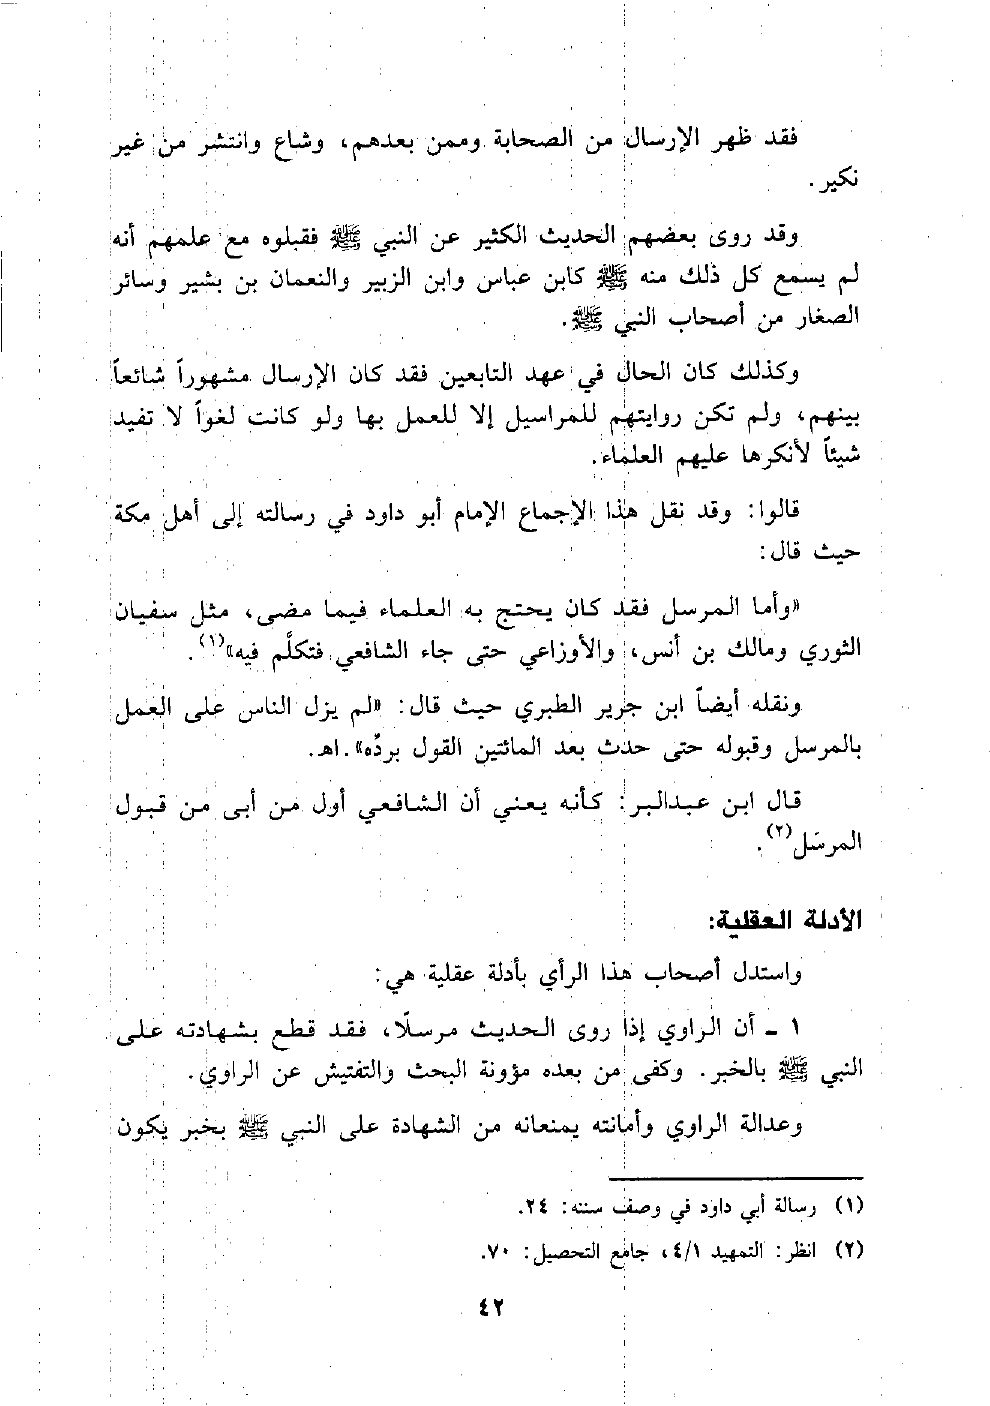 فقد ظهر الإرسال من الصحابة وممن بعدهم، وشاع وانتشر من غير
نكير.
وقد روى بعضهم الحديث الكثير عن النبي ﷺ فقبلوه مع علمهم أنه
لم يسمع كل ذلك منه ﷺ كابن عباس وابن الزبير والنعمان بن بشير وسائر
الصغار من أصحاب النبي ﷺ.
وكذلك كان الحال في عهد التابعين فقد كان الإرسال مشهوراً شائعاً
بينهم، ولم تكن روايتهم للمراسيل إلا للعمل بها ولو كانت لغواً لا تفيد
شيئاً لأنكرها عليهم العلماء.
قالوا: وقد نقل هذا الإجماع الإمام أبو داود في رسالته إلى أهل مكة
حيث قال:
«وأما المرسل فقد كان يحتج به العلماء فيما مضى، مثل سفيان
الثوري ومالك بن أنس، والأوزاعي حتى جاء الشافعي فتكلَّم فيه»(١).
ونقله أيضاً ابن جرير الطبري حيث قال: «لم يزل الناس على العمل
بالمرسل وقبوله حتى حدث بعد المائتين القول بردّه».اهـ.
قال ابن عبدالبر: كأنه يعني أن الشافعي أول من أبى من قبول
المرسَل(٢).
الأدلة العقلية:
واستدل أصحاب هذا الرأي بأدلة عقلية هي:
١ ـ أن الراوي إذا روى الحديث مرسلًا، فقد قطع بشهادته على
النبي ﷺ بالخبر. وكفى من بعده مؤونة البحث والتفتيش عن الراوي.
وعدالة الراوي وأمانته يمنعانه من الشهادة على النبي ﷺ بخبر يكون
(١) رسالة أبي داود في وصف سننه: ٢٤.
(٢) انظر: التمهيد ٤/١، جامع التحصيل: ٧٠.
٤٢